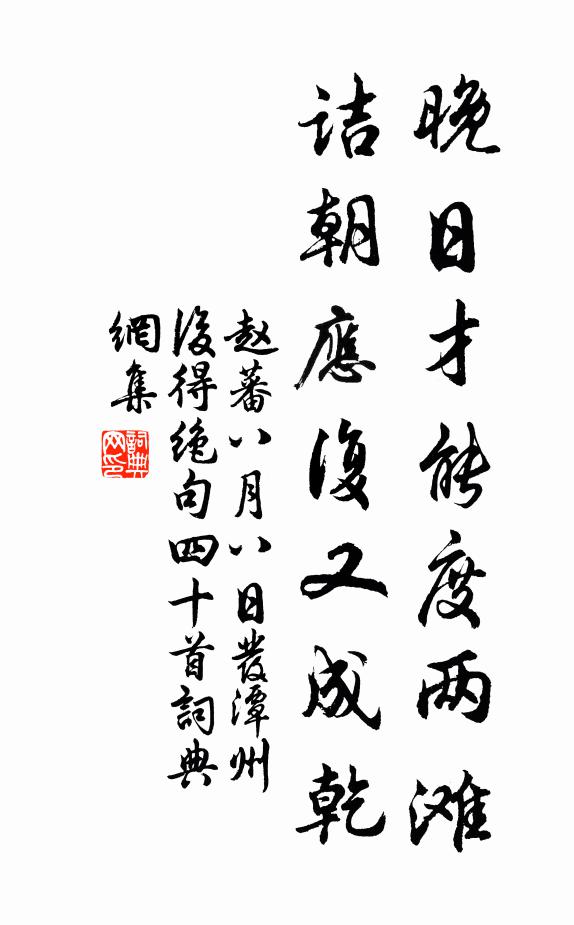 晚日才能度两滩
诘朝應復又成乾
赵蕃八月八日發潭州
後得絶句四十首詞典
網集
詞典
网印